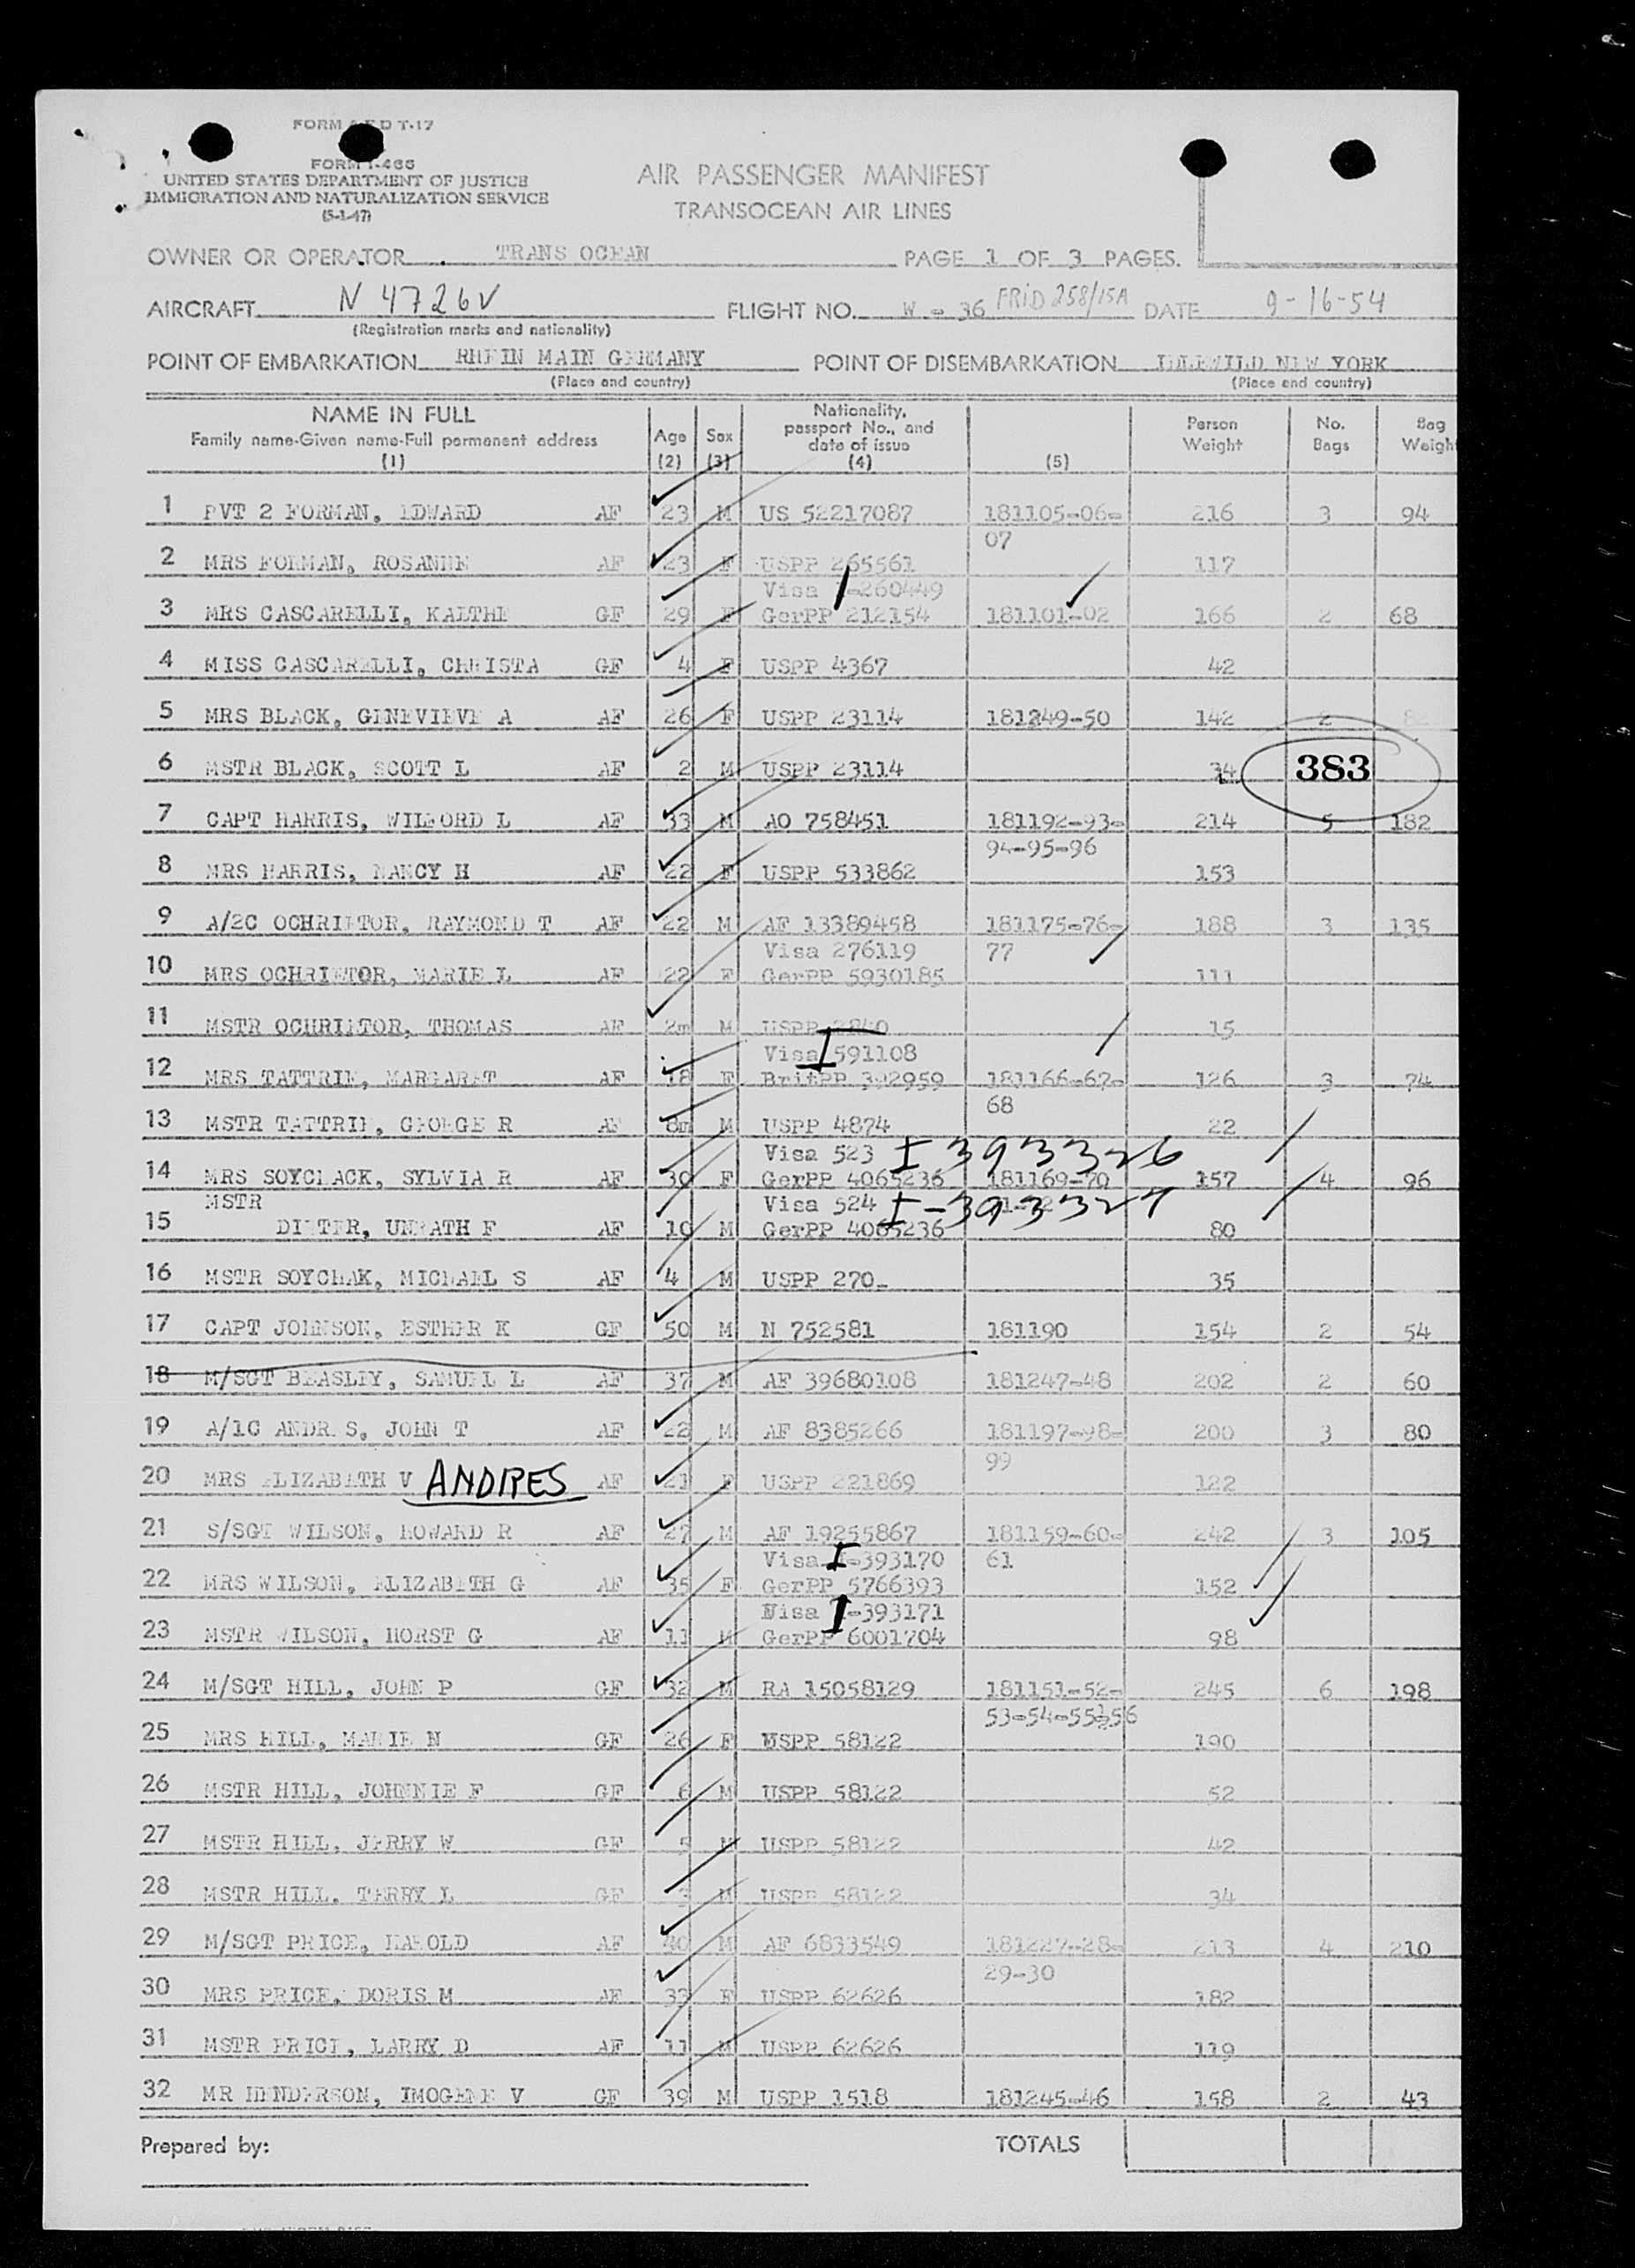 FORM A E D T-17
FORM I-466
UNITED STATES DEPARTMENT OF JUSTICE
IMMIGRATION AND NATURALIZATION SERVICE
(5-1-47)
AIR PASSENGER MANIFEST
TRANSOCEAN AIR LINES
OWNER OR OPERATOR TRANS OCEAN PAGE 1 OF 3 PAGES.
AIRCRAFT N 4726V FLIGHT NO. W - 36 FRID 258/15A DATE 9-16-54
(Registration marks and nationality)
POINT OF EMBARKATION RHEIN MAIN GERMANY POINT OF DISEMBARKATION IDLEWILD NEW YORK
(Place and country) (Place and country)
NAME IN FULL
Family name-Given name-Full permanent address
(1)
Age
(2)
Sex
(3)
Nationality,
passport No., and
date of issue
(4)
(5)
Person
Weight
No.
Bags
Bag
Weigh
1 PVT 2 FORMAN, EDWARD AF 23 M US 52217087 181105-06- 216 3 94
07
2 MRS FORMAN, ROSANNE AF 23 F USPP 265561 117
Visa I-260449
3 MRS CASCARELLI, KAETHE GF 29 F GerPP 212154 181101-02 166 2 68
4 MISS CASCARELLI, CHRISTA GF 4 F USPP 4367 42
5 MRS BLACK, GENEVIEVE A AF 26 F USPP 23114 181249-50 142 2
6 MSTR BLACK, SCOTT L AF 2 M USPP 23114 34 383
7 CAPT HARRIS, WILFORD L AF 33 M AO 758451 181192-93- 214 5 182
94-95-96
8 MRS HARRIS, NANCY H AF 22 F USPP 533862 153
9 A/2C OCHRIETOR, RAYMOND T AF 22 M AF 13389458 181175-76- 188 3 135
Visa 276119 77
10 MRS OCHRIETOR, MARIE L AF 22 F GerPP 5930185 111
11 MSTR OCHRIETOR, THOMAS AF 2m M USPP 15
Visa I 591108
12 MRS TATTRIE, MARGARET AF 18 F BritPP 392959 181166-67- 126 3 74
68
13 MSTR TATTRIE, GEORGE R AF 8m M USPP 4874 22
Visa 523 I-393326
14 MRS SOYCHACK, SYLVIA R AF 30 F GerPP 4065236 181169-70 157 4 96
MSTR Visa 524 I-393327
15 DIETER, UNRATH F AF 10 M GerPP 4065236 80
16 MSTR SOYCHAK, MICHAEL S AF 4 M USPP 270- 35
17 CAPT JOHNSON, ESTHER K GF 50 M N 752581 181190 154 2 54
18 M/SGT BEASLEY, SAMUEL L AF 37 M AF 39680108 181247-48 202 2 60
19 A/1C ANDR S, JOHN T AF 22 M AF 8385266 181197-98- 200 3 80
99
20 MRS ELIZABETH V ANDRES AF 21 F USPP 221869 122
21 S/SGT WILSON, HOWARD R AF 27 M AF 19255867 181159-60- 242 3 105
Visa I-393170 61
22 MRS WILSON, ELIZABETH G AF 35 F GerPP 5766393 152
Visa I-393171
23 MSTR WILSON, HORST G AF 11 M GerPP 6001704 98
24 M/SGT HILL, JOHN P GF 32 M RA 15058129 181151-52- 245 6 198
53-54-55-56
25 MRS HILL, MARIE N GF 26 F USPP 58122 190
26 MSTR HILL, JOHNNIE F GF 6 M USPP 58122 52
27 MSTR HILL, JERRY W GF 5 M USPP 58122 42
28 MSTR HILL, TERRY L GF 3 M USPP 58122 34
29 M/SGT PRICE, HAROLD AF 40 M AF 6833549 181227-28- 213 4 210
29-30
30 MRS PRICE, DORIS M AF 33 F USPP 62626 182
31 MSTR PRICE, LARRY D AF 11 M USPP 62626 119
32 MR HENDERSON, IMOGENE V GF 39 M USPP 1518 181245-46 158 2 43
Prepared by: TOTALS